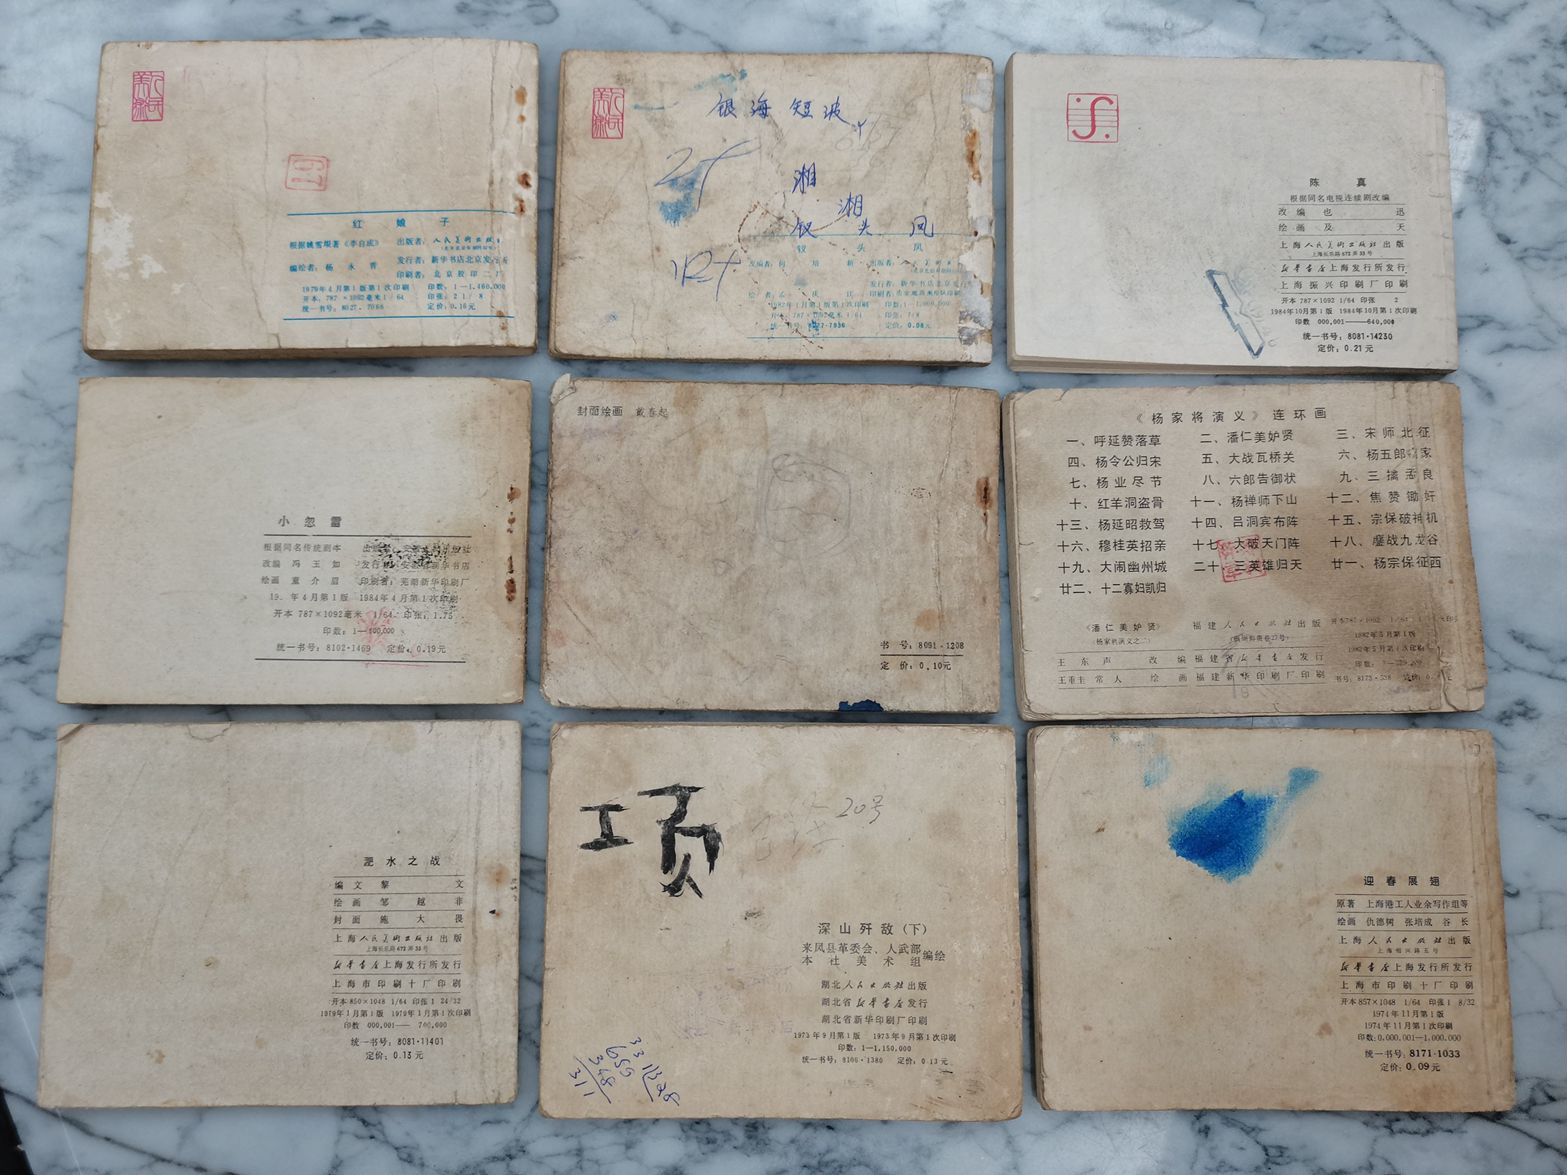 红娘子
根据姚雪垠著《李自成》 出版者：人民美术出版社
编绘者：杨永青 发行者：新华书店北京发行所
印刷者：北京胶印二厂
1979年4月第1版第1次印刷 印数：1—1,460,000
开本：787×1092毫米1/64 印张：2 1/8
统一书号：8027·7066 定价：0.16元
人民美术
银海短波
湘
湘
钗头凤
钗头凤
1982年1月第1版第1次印刷
定价：0.08元
陈真
根据同名电视连续剧改编
改编 也迅
绘画 及天
上海人民美术出版社出版
上海长乐路672弄33号
新华书店上海发行所发行
上海振兴印刷厂印刷
开本 787×1092 1/64 印张 2
1984年10月第1版 1984年10月第1次印刷
印数 000,001——640,000
统一书号：8081·14230
定价：0.21元
小忽雷
根据同名传统剧本
改编 冯玉如
绘画 董介眉 印刷者：芜湖新华印刷厂
19 年4月第1版 1984年4月第1次印刷
开本 787×1092毫米 1/64 印张：1.75
印数：1—400,000
统一书号：8102·1469 定价：0.19元
封面绘画 戴春起
书号：8091·1208
定价：0.10元
《杨家将演义》连环画
一、呼延赞落草 二、潘仁美妒贤 三、宋师北征
四、杨令公归宋 五、大战瓦桥关 六、杨五郎出家
七、杨业尽节 八、六郎告御状 九、三擒孟良
十、红羊洞盗骨 十一、杨禅师下山 十二、焦赞锄奸
十三、杨延昭救驾 十四、吕洞宾布阵 十五、宗保破神机
十六、穆桂英招亲 十七、大破天门阵 十八、鏖战九龙谷
十九、大闹幽州城 二十、三英雄归天 廿一、杨宗保征西
廿二、十二寡妇凯归
《潘仁美妒贤》 福建人民出版社出版 开本787×1092 1/64
（杨家将演义之二） （福州得贵巷27号） 1982年5月第1版
王东声 改编 福建省新华书店发行 1982年5月第1次印刷
王重圭 常人 绘画 福建新华印刷厂印刷 书号：8173·538
淝水之战
编文 黎文
绘画 邹越非
封面 施大畏
上海人民美术出版社出版
上海长乐路672弄33号
新华书店上海发行所发行
上海市印刷十厂印刷
开本 850×1048 1/64 印张 1 24/32
1979年1月第1版 1979年1月第1次印刷
印数 000,001—— 700,000
统一书号：8081·11401
定价：0.13元
工项
20号
深山歼敌（下）
来凤县革委会、人武部
本社美术组编绘
湖北人民出版社出版
湖北省新华书店发行
湖北省新华印刷厂印刷
1973年9月第1版 1973年9月第1次印刷
印数：1—1,150,000
统一书号：8106·1380 定价：0.13元
迎春展翅
原著 上海港工人业余写作组等
绘画 仇德树 张培成 谷长
上海人民出版社出版
上海绍兴路五号
新华书店上海发行所发行
上海市印刷十厂印刷
开本 857×1048 1/64 印张 1 8/32
1974年11月第1版
1974年11月第1次印刷
印数：0,000,001—1,000,000
统一书号：8171·1033
定价：0.09元